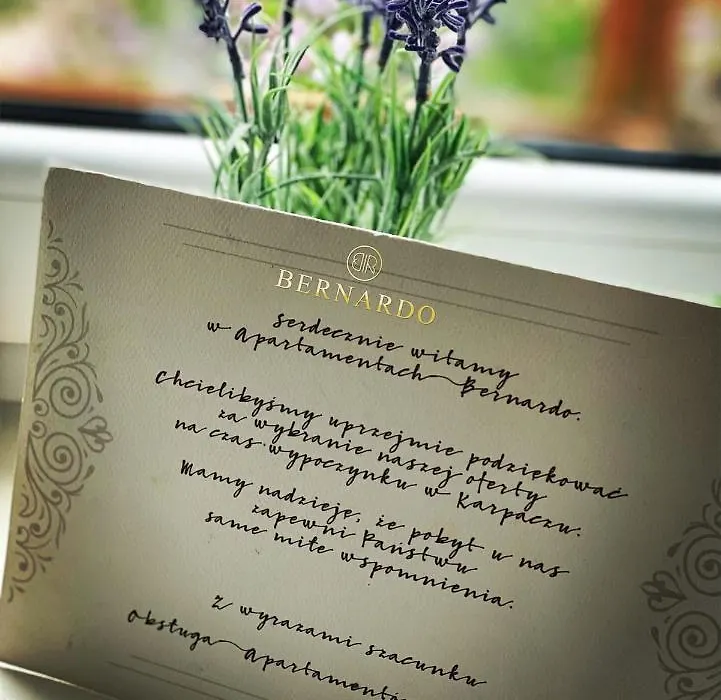 BR
BERNARDO
Serdecznie witamy
w Apartamentach Bernardo.
Chcielibyśmy uprzejmie podziękować
za wybranie naszej oferty
na czas wypoczynku w Karpaczu.
Mamy nadzieję, że pobyt u nas
zapewni Państwu
same miłe wspomnienia.
Z wyrazami szacunku
Obsługa